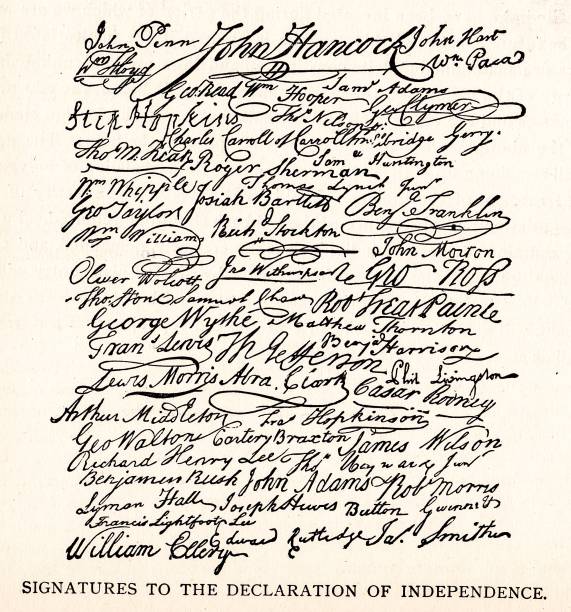 John Penn John Hancock John Hart
Wm Floyd Wm Paca
Geo Read Wm Hooper Saml Adams
Step Hopkins Thos. Nelson Jr. Geo Clymer
Charles Carroll of Carrollton Elbridge Gerry.
Tho M. Kean Roger Sherman Saml Huntington
Wm Whipple Josiah Bartlett Thomas Lynch Junr
Geo Taylor Benj Franklin
Wm Williams Richd Stockton John Morton
Oliver Wolcott Jno Witherspoon Geo Ross
Thos. Stone Samuel Chase Robt Treat Paine
George Wythe Matthew Thornton
Fran Lewis Th Jefferson Benj Harrison
Lewis Morris Abra. Clark Phil Livingston
Cæsar Rodney
Arthur Middleton Fras Hopkinson
Geo Walton Carter Braxton James Wilson
Richard Henry Lee Thos Heyward Junr
Benjamin Rush John Adams Robt Morris
Lyman Hall Joseph Hewes Button Gwinnett
Francis Lightfoot Lee
William Ellery Edward Rutledge Jas. Smith
SIGNATURES TO THE DECLARATION OF INDEPENDENCE.